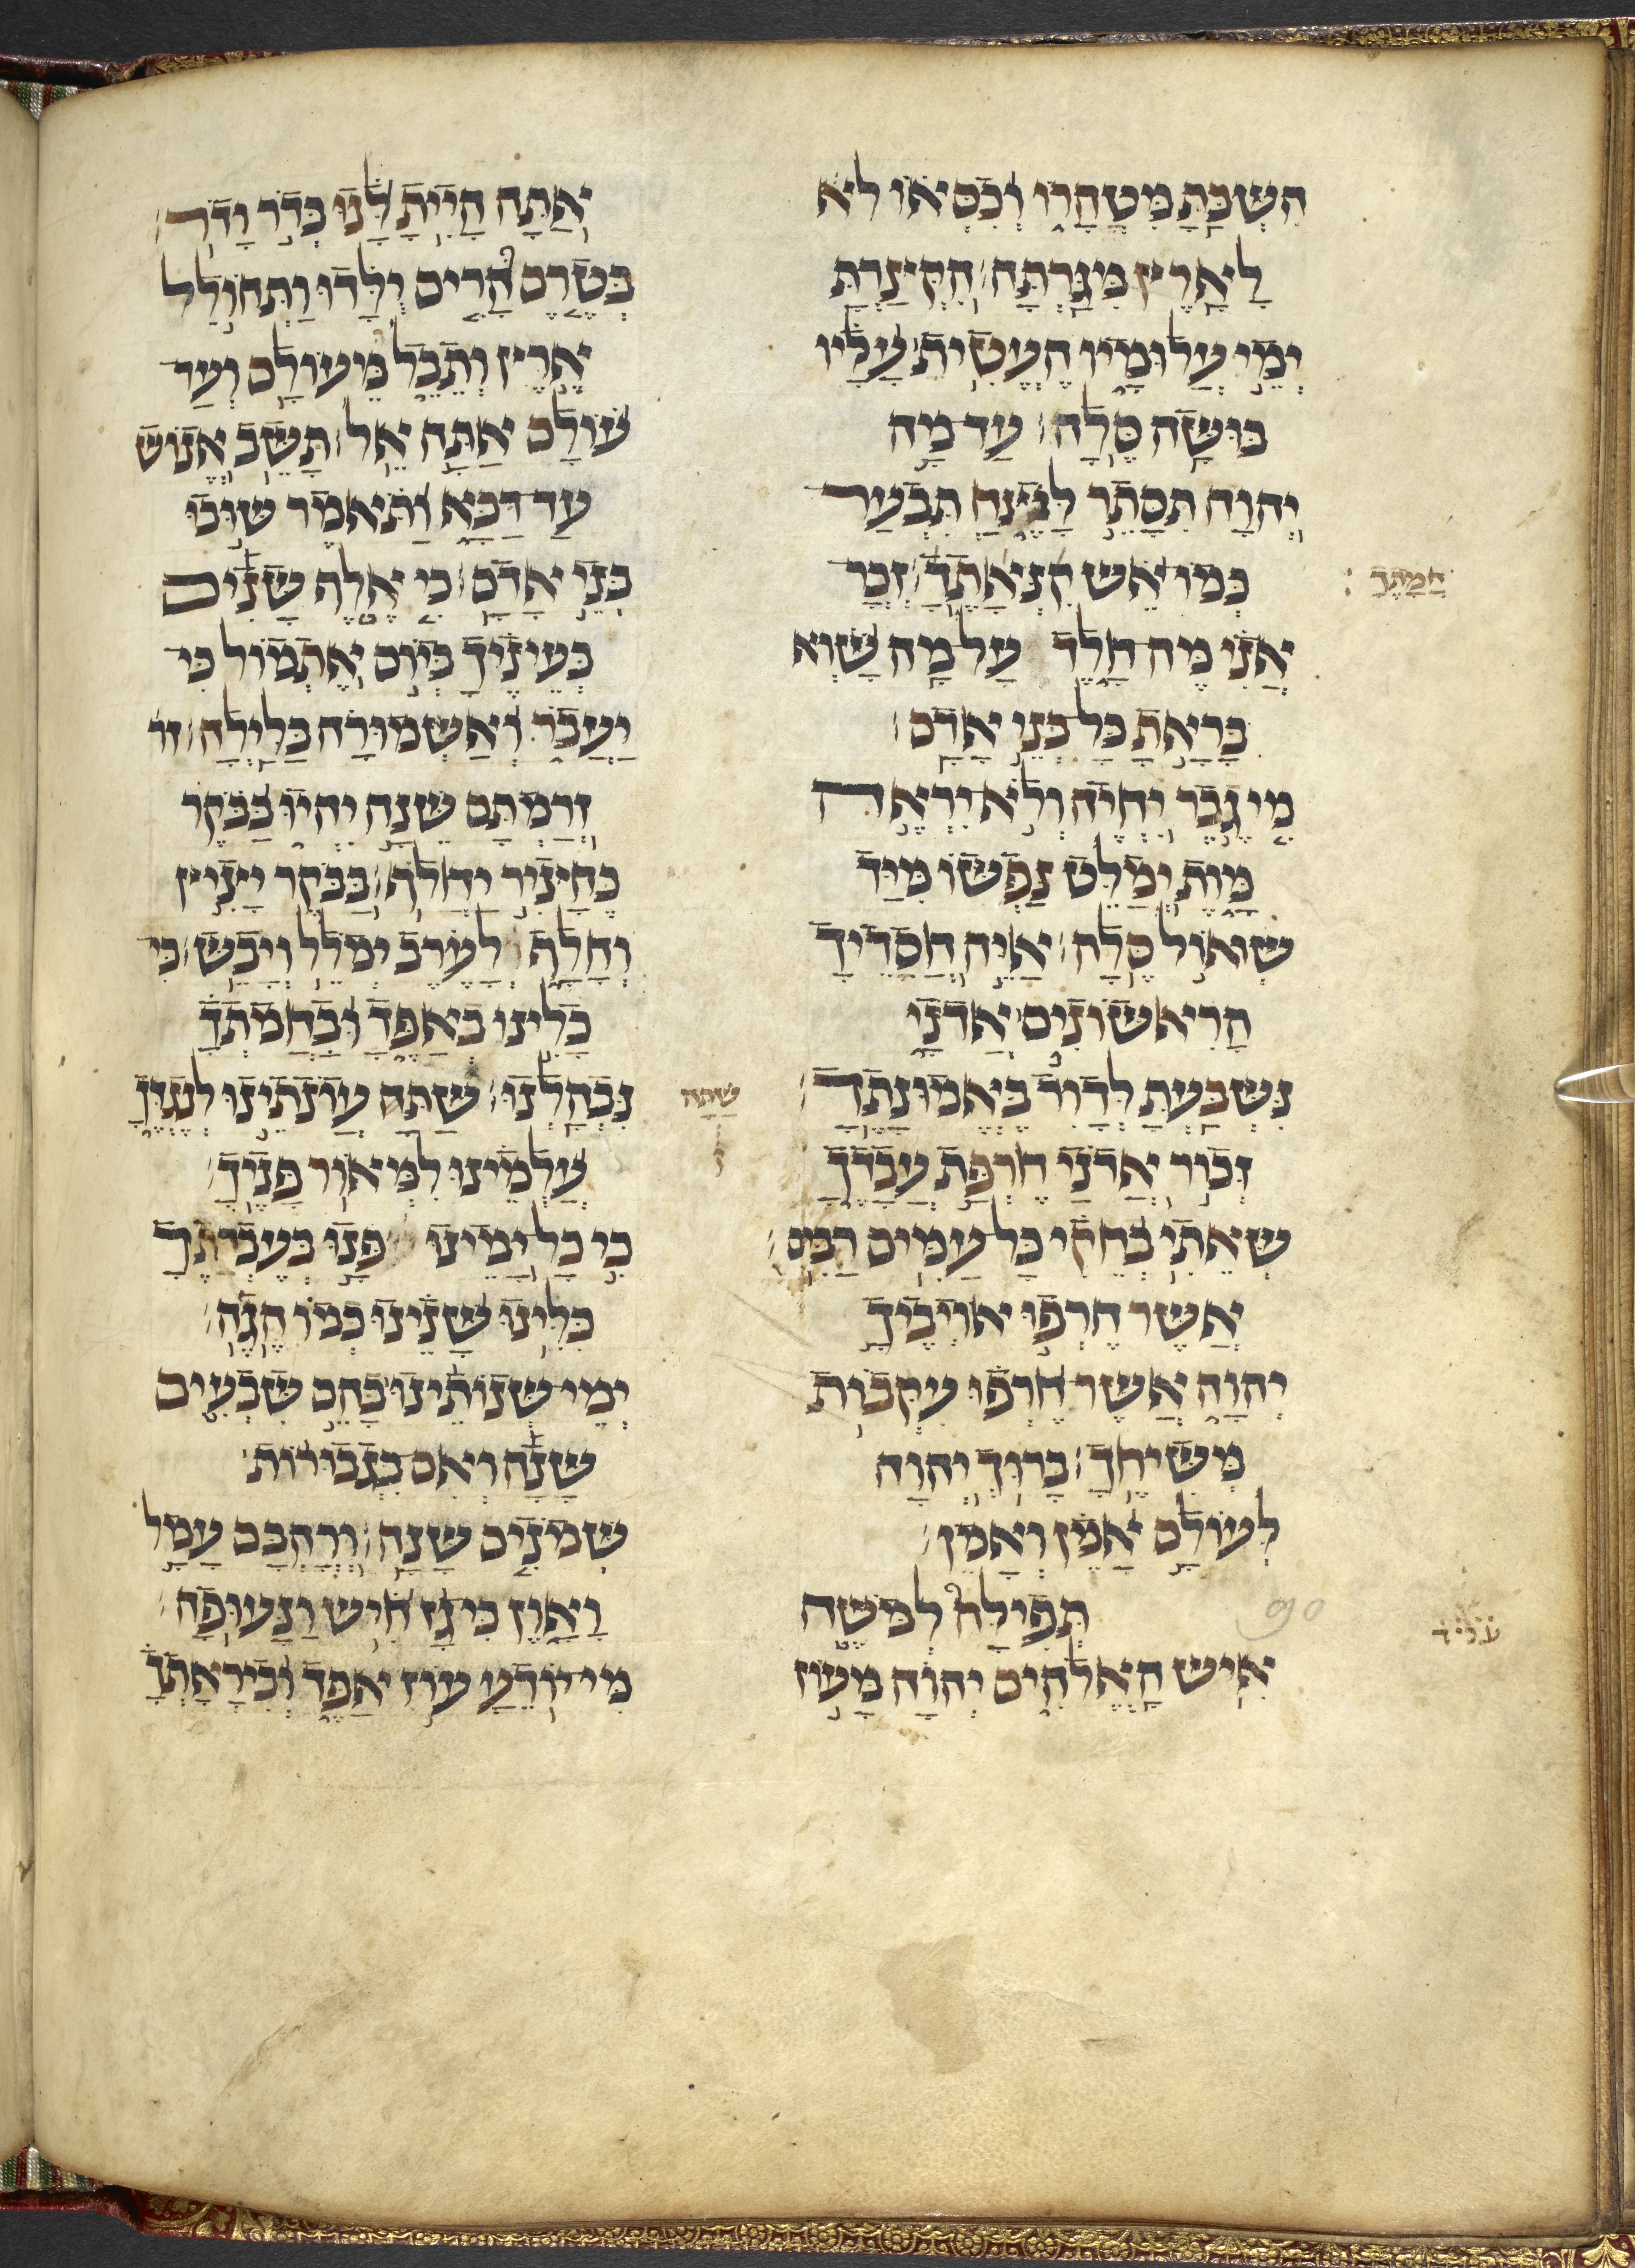 השבת מטהרו וכסאו לא
לארץ מגרתה הקצרת
ימי עלומיו העטית עליו
בושה סלה עד מה
יהוה תסתר לנצח תבער
כמו אש קנאתך זכר
חמתך
אני מה חלד על מה שוא
בראת כל בני אדם
מי גבר יחיה ולא יראה
מות ימלט נפשו מיד
שאול סלה איה חסדיך
הראשונים אדני
נשבעת לדויד באמונתך
זכור אדני חרפת עבדך
שאתי בחקי כל עמים רבים
אשר חרפו אויביך
יהוה אשר חרפו עקבות
משיחך ברוך יהוה
לעולם אמן ואמן
תפילה למשה
90
איש האלהים יהוה מעוז
אתה היית לנו בדר ודר
בטרם הרים ילדו ותחולל
ארץ ותבל מעולם ועד
עולם אתה אל תשב אנוש
עד דכא ותאמר שובו
בני אדם כי אלף שנים
בעיניך כיום אתמול כי
יעבר ואשמורה בלילה זר
זרמתם שנה יהיו בבקר
כחציר יחלף בבקר יציץ
וחלף לערב ימלל ויבש כי
כלינו באפך ובחמתך
נבהלנו שתה עונתינו לנגדך
שתה
עלמינו למאור פניך
כי כל ימינו פנו בעברתך
כלינו שנינו כמו הגה
ימי שנותינו בהם שבעים
שנה ואם בגבורות
שמנים שנה ורהבם עמל
ואון כי גז חיש ונעופה
מי יודע עוז אפך וכיראתך